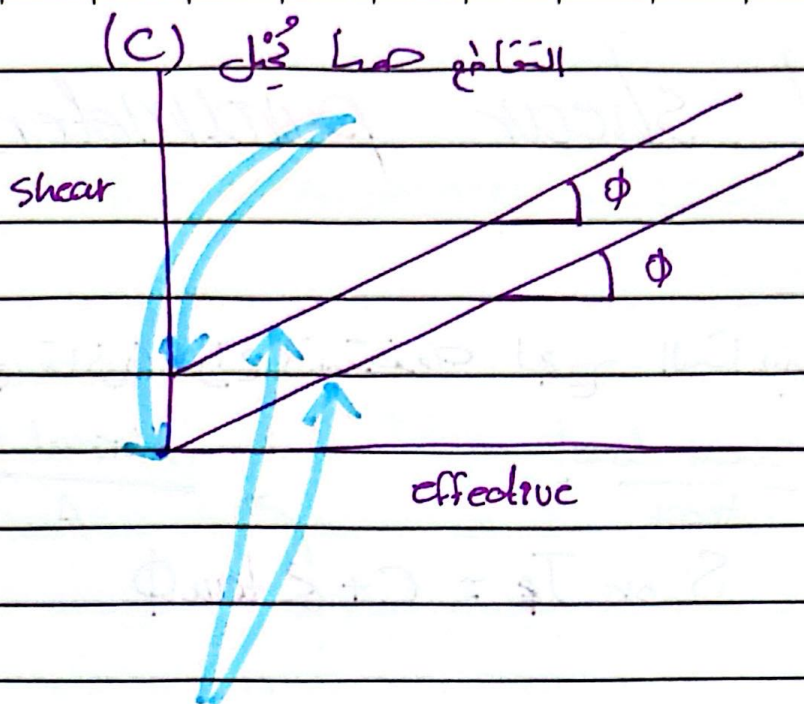 (C) التقاطع هنا يُمثل
shear
Φ
Φ
effective